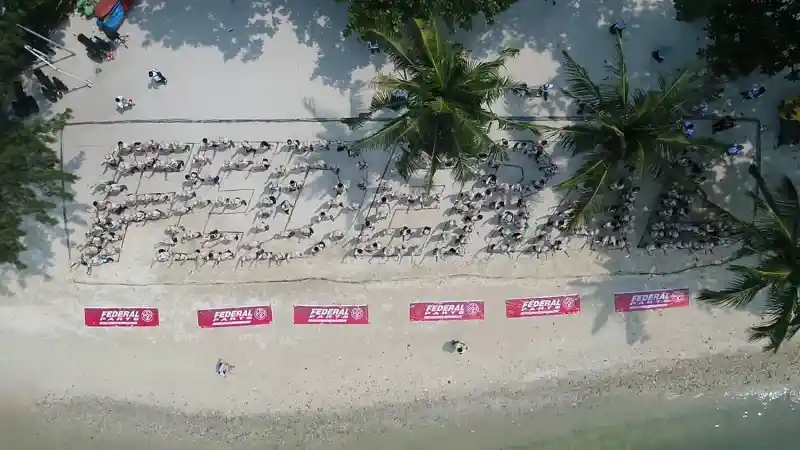 FEDERAL
FEDERAL
PARTS
FEDERAL
PARTS
FEDERAL
PARTS
FEDERAL
PARTS
FEDERAL
PARTS
FEDERAL
PARTS